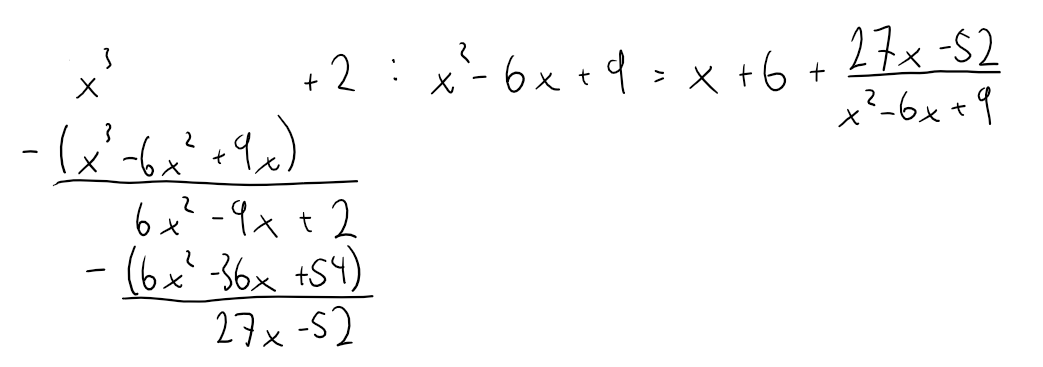 x³ + 2 : x² - 6x + 9 = x + 6 + (27x - 52)/(x² - 6x + 9)
- (x³ - 6x² + 9x)
6x² - 9x + 2
- (6x² - 36x + 54)
27x - 52